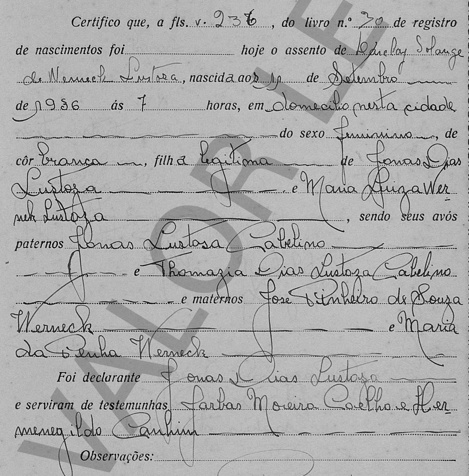 Certifico que, a fls. v. 236, do livro n.º 70 de registro
de nascimentos foi hoje o assento de Solange
de Werneck Lustosa, nascida aos de Setembro
de 1936 ás 7 horas, em domicilio nesta cidade
do sexo feminino, de
côr branca, filha legitima de Jonas Dias
Lustoza e Maria Luiza Wer
nek Lustoza, sendo seus avós
paternos Jonas Lustosa Cabelino
e Thomazia Dias Lustoza Cabelino
e maternos José Pinheiro de Souza
Werneck e Maria
da Penha Werneck
Foi declarante Jonas Dias Lustosa
e serviram de testemunhas Jarbas Moreira Coelho e Her
menegildo
Observações:
VALOR LE